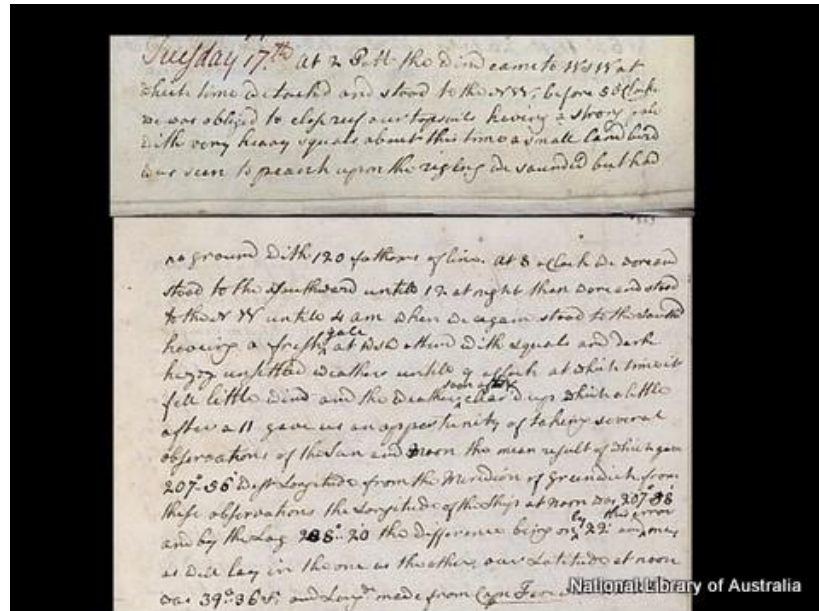 Tuesday 17th at 2 PM the Wind came to WSW at
which time we tack'd and stood to the NW, before 5 oClock
we was obliged to close reef our topsails having a strong gale
with very heavy squals about this time a small land bird
was seen to pearch upon the riging we sounded but had
no ground with 120 fathoms of line. At 8 oClock we wore and
stood to the Southward untill 12 at night then wore and stood
to the NW untill 4 am when we again stood to the Southd
having a fresh gale at WSW attend with squals and dark
hazy unsettled weather untill 9 oClock at which time it
fell little wind and the weather soon after clear'd up which a little
after a 11 gave us an oppertunity of takeing several
observations of the Sun and Moon the mean result of which gave
207°-56' West Longitude from the Meridion of Greenwich from
these observations the Longitude of the Ship at noon was 207°-58'
and by the Log 208°-20' the difference being only 22' and this error may
as well lay in the one as the other, our Latitude at noon
was 39°:36' S, and Longd made from Cape
National Library of Australia